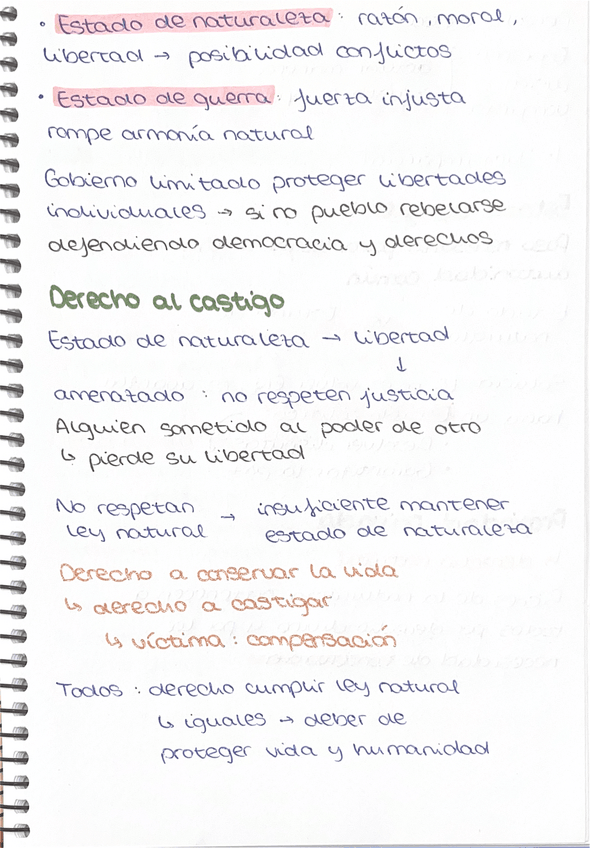 • Estado de naturaleza: razón, moral,
libertad → posibilidad conflictos
• Estado de guerra: fuerza injusta
rompe armonía natural
Gobierno limitado proteger libertades
individuales → si no pueblo rebelarse
defendiendo democracia y derechos
Derecho al castigo
Estado de naturaleza → libertad
↓
amenazado : no respeten justicia
Alguien sometido al poder de otro
↳ pierde su libertad
No respetan → insuficiente mantener
ley natural estado de naturaleza
Derecho a conservar la vida
↳ derecho a castigar
↳ víctima : compensación
Todos : derecho cumplir ley natural
↳ iguales → deber de
proteger vida y humanidad